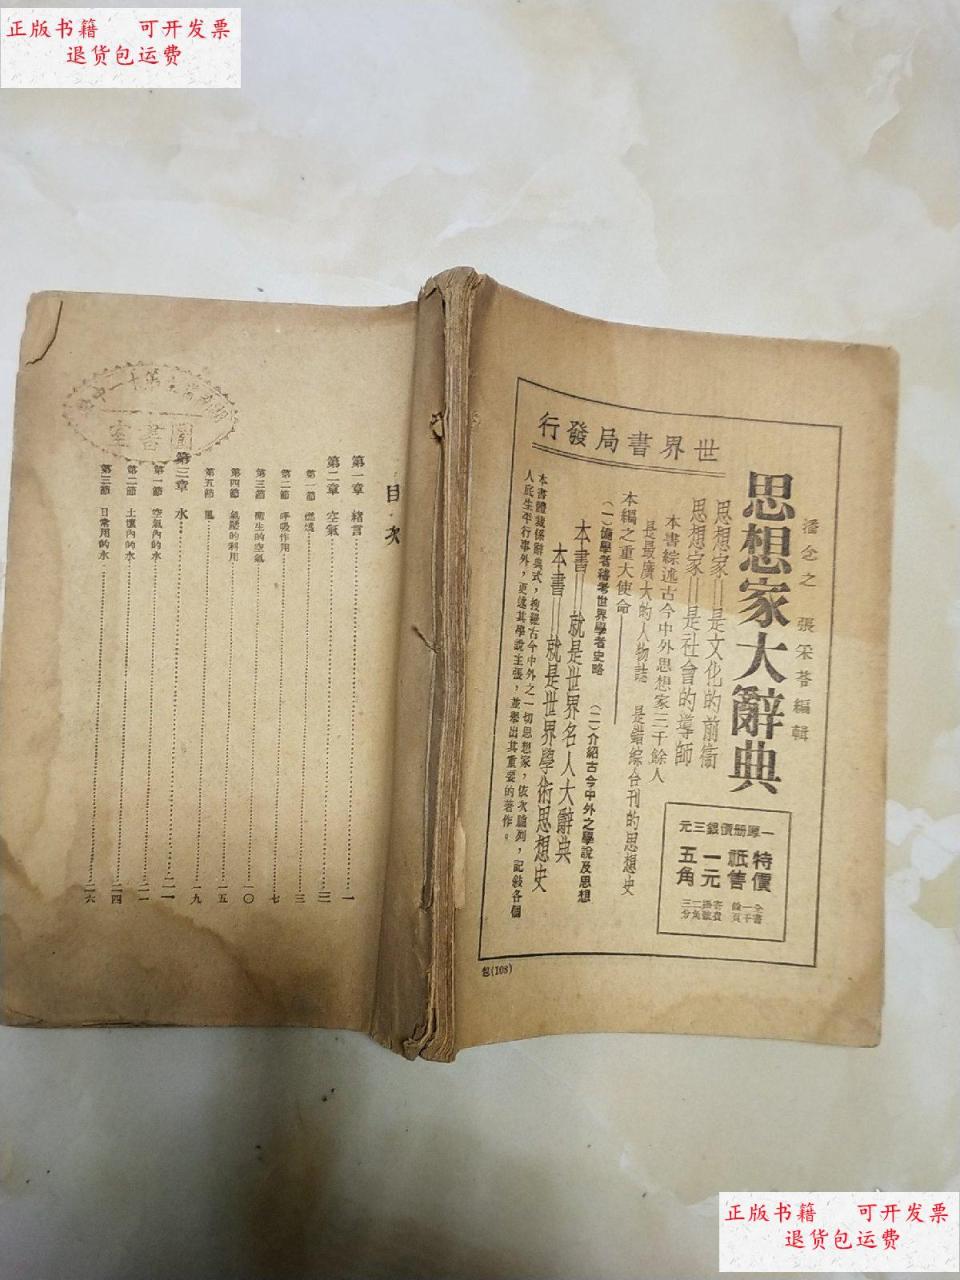 正版书籍 可开发票
退货包运费
世界書局發行
潘念之 張采苓編輯
思想家大辭典
思想家══是文化的前衞
思想家══是社會的導師
本書綜述古今中外思想家三千餘人
是最廣大的人物誌 是錯綜合刊的思想史
本編之重大使命
(一)備學者稽考世界學者史略 (二)介紹古今中外之學說及思想
本書══就是世界名人大辭典
本書══就是世界學術思想史
本書體裁係辭典式，搜羅古今中外之一切思想家，依次臚列，記敍各個
人底生平行事外，更述其學說主張，並舉出其重要的著作。
一厚册價銀三元
特價
祇售
一元
五角
全書
一千
餘頁
寄費
掛號
二角
三分
包(108)
目次
第一章 緒言 一
第二章 空氣 三
第一節 燃燒 三
第二節 呼吸作用 七
第三節 衞生的空氣 一〇
第四節 氣壓的利用 一五
第五節 風 一九
第三章 水 二一
第一節 空氣內的水 二一
第二節 土壤內的水 二四
第三節 日常用的水 二六
第十一中
圖書室
正版书籍 可开发票
退货包运费